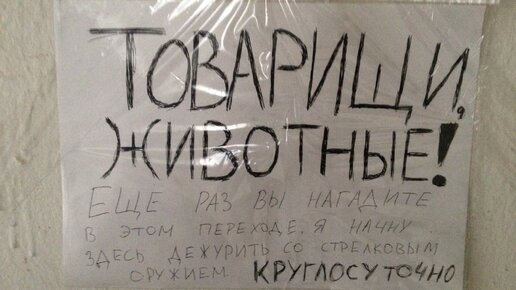 ТОВАРИЩИ,
ЖИВОТНЫЕ!
ЕЩЕ РАЗ ВЫ НАГАДИТЕ
В ЭТОМ ПЕРЕХОДЕ. Я НАЧНУ
ЗДЕСЬ ДЕЖУРИТЬ СО СТРЕЛКОВЫМ
ОРУЖИЕМ КРУГЛОСУТОЧНО